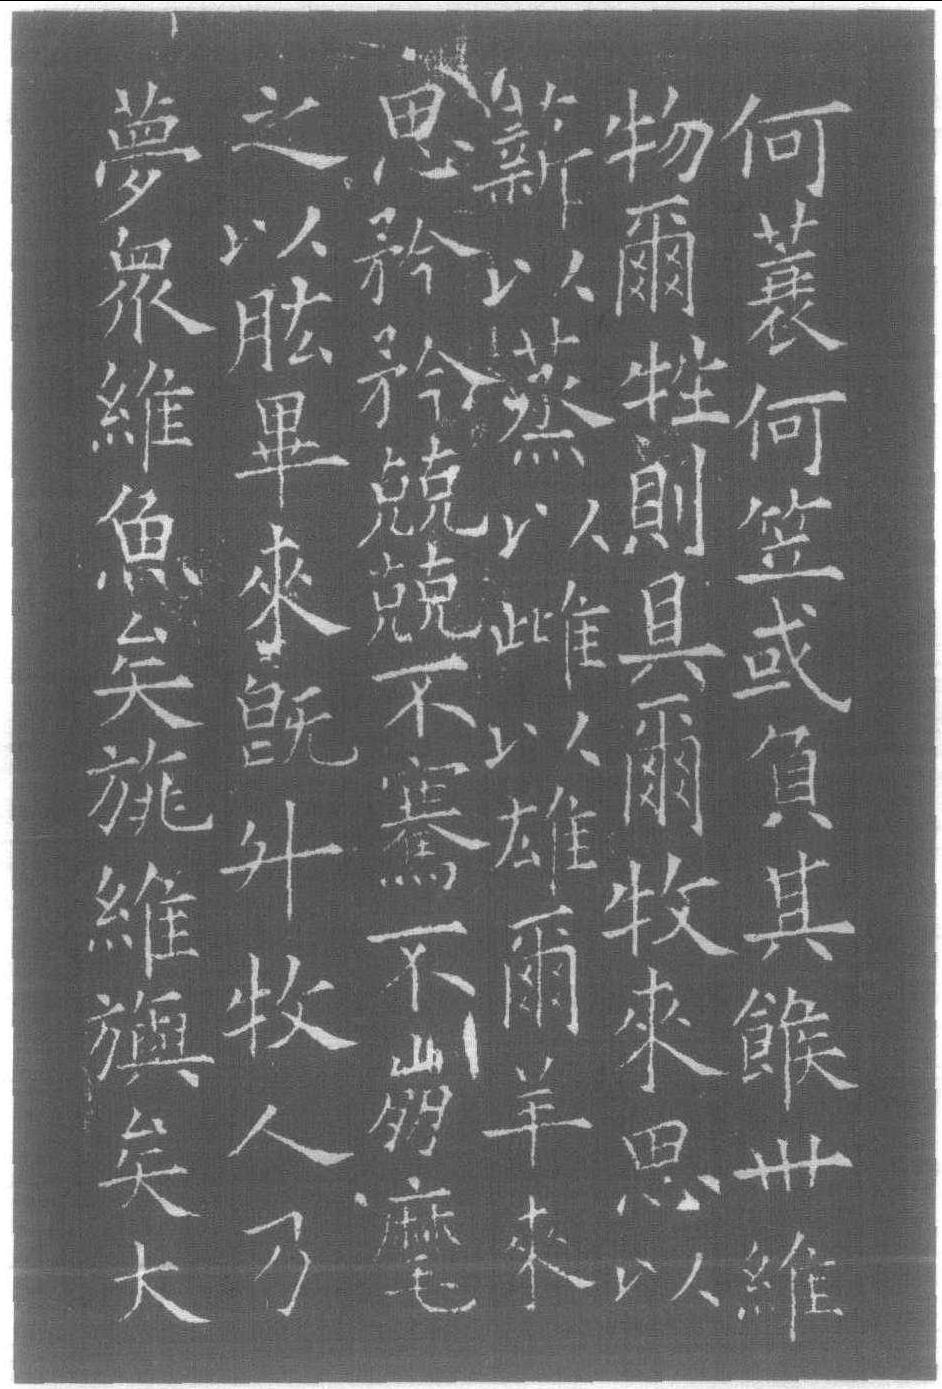 何蓑何笠或負其餱卅維
物爾牲則具爾牧來思以
薪以蒸以雌以雄爾羊來
思矜矜兢兢不騫不崩麾
之以肱畢來既升牧人乃
夢眾維魚矣旐維旟矣大